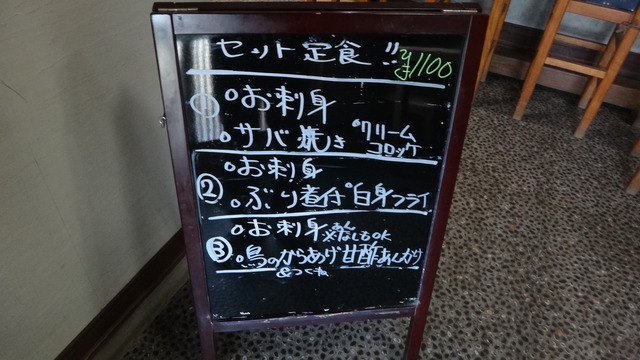 セット定食!! ¥1100
① お刺身
サバ焼き クリームコロッケ
② お刺身
ぶり煮付 白身フライ
③ お刺身 ※あんなしもOK
鳥のからあげ甘酢あんかけ
&つくね